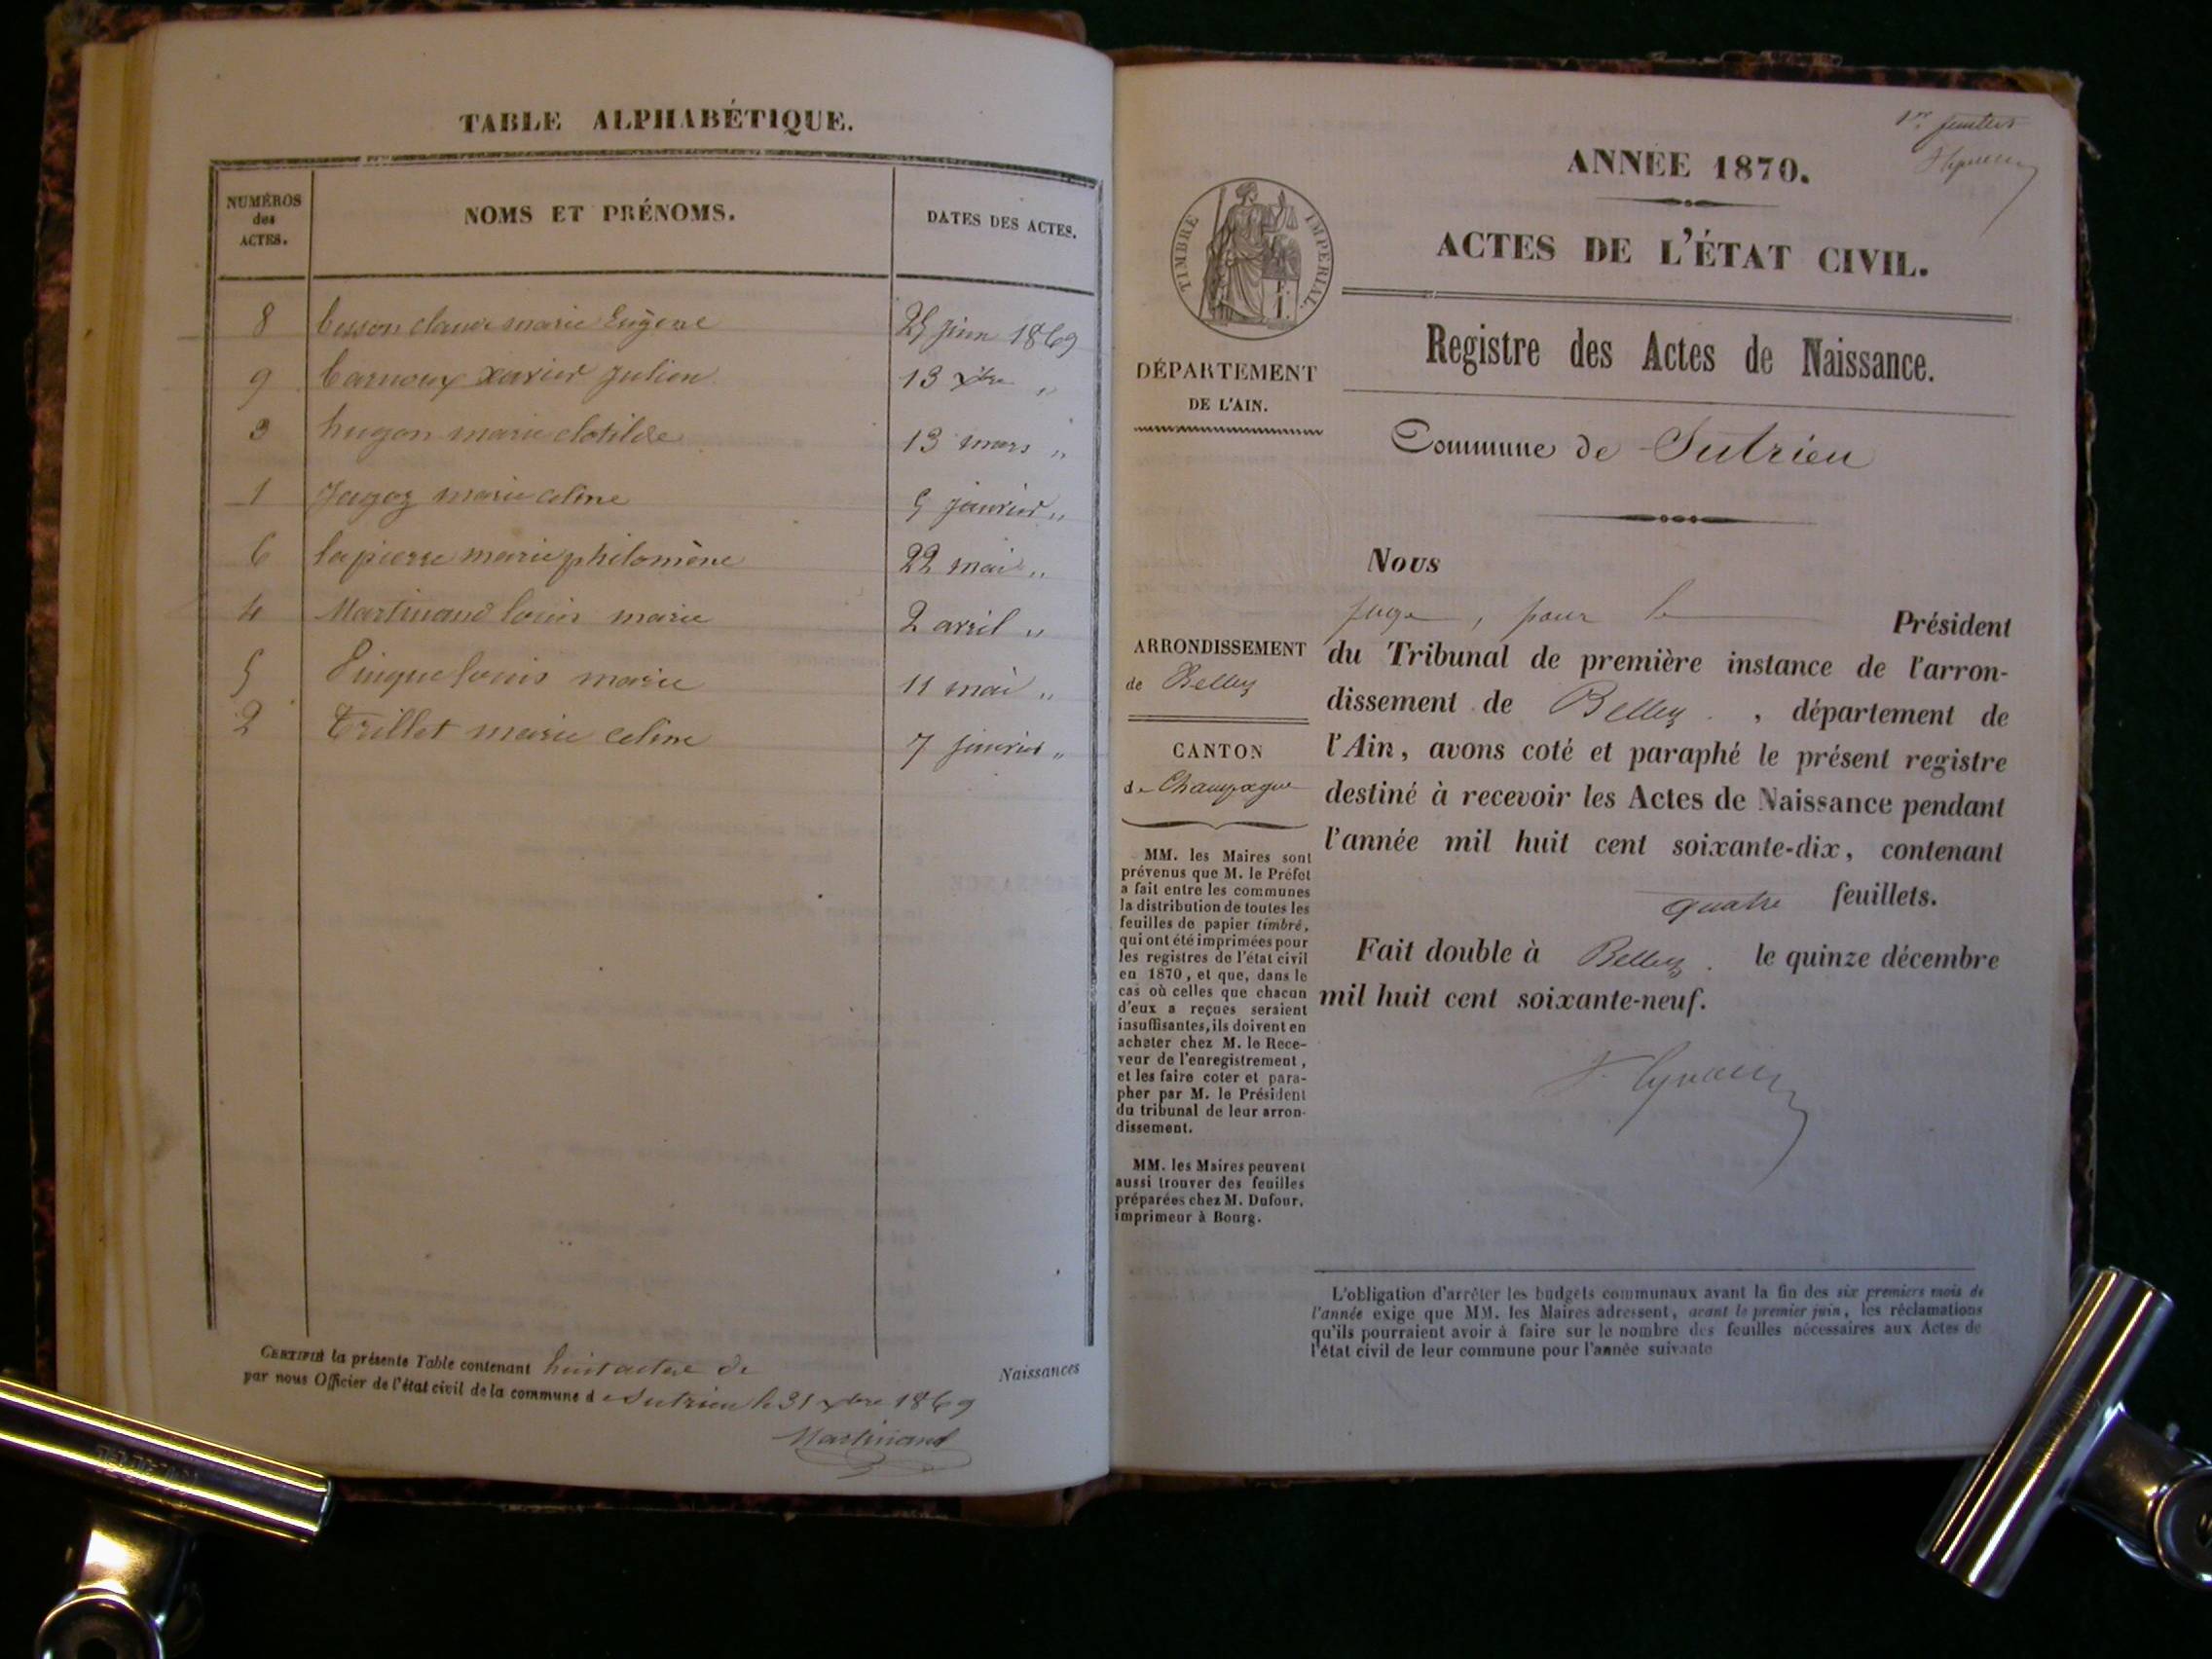 TABLE ALPHABÉTIQUE.
NUMÉROS des ACTES.
NOMS ET PRÉNOMS.
DATES DES ACTES.
8 besson claude marie Eugène 25 juin 1869
9 Carnoux xavier julien 13 xbre "
3 hugon marie clotilde 13 mars "
1 Jagoz marie celine 5 janvier "
6 lapierre marie philomène 22 mai "
4 Martinand louis marie 2 avril "
5 louis marie 11 mai "
2 trillet marie celine 7 janvier "
CERTIFIÉ la présente Table contenant huit actes de Naissances
par nous Officier de l'état civil de la commune d e Sutrieu le 31 xbre 1869
Martinand
1er feuillet
ANNÉE 1870.
ACTES DE L'ÉTAT CIVIL.
TIMBRE IMPÉRIAL.
Registre des Actes de Naissance.
DÉPARTEMENT
DE L'AIN.
Commune de Sutrieu
ARRONDISSEMENT
de Belley
CANTON
de Champagne
MM. les Maires sont
prévenus que M. le Préfet
a fait entre les communes
la distribution de toutes les
feuilles de papier timbré,
qui ont été imprimées pour
les registres de l'état civil
en 1870, et que, dans le
cas où celles que chacun
d'eux a reçues seraient
insuffisantes, ils doivent en
acheter chez M. le Rece-
veur de l'enregistrement,
et les faire coter et para-
pher par M. le Président
du tribunal de leur arron-
dissement.
MM. les Maires peuvent
aussi trouver des feuilles
préparées chez M. Dufour,
imprimeur à Bourg.
Nous
juge, pour le Président
du Tribunal de première instance de l'arron-
dissement de Belley, département de
l'Ain, avons coté et paraphé le présent registre
destiné à recevoir les Actes de Naissance pendant
l'année mil huit cent soixante-dix, contenant
quatre feuillets.
Fait double à Belley. le quinze décembre
mil huit cent soixante-neuf.
L'obligation d'arrêter les budgets communaux avant la fin des six premiers mois de
l'année exige que MM. les Maires adressent, avant le premier juin, les réclamations
qu'ils pourraient avoir à faire sur le nombre des feuilles nécessaires aux Actes de
l'état civil de leur commune pour l'année suivante